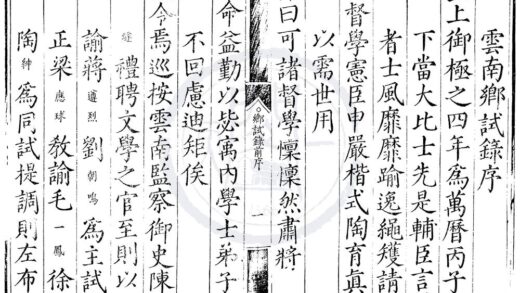 雲南鄉試錄序
上御極之四年爲萬曆丙子
下當大比士先是輔臣言
者士風靡靡踰逸繩矱請
督學憲臣申嚴楷式陶育眞
以需世用
曰可諸督學懍懍然肅將
鄉試錄前序 一
命益勤以毖寓內學士弟子
不回慮迪矩俟
令焉巡按雲南監察御史陳
禮聘文學之官至則以
諭蔣遵烈劉朝鳴爲主試
正梁應球教諭毛一鳳徐
陶紳爲同試提調則左布